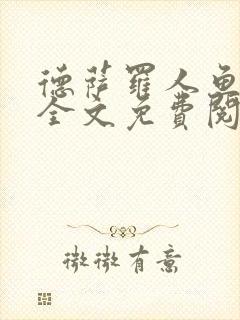 德萨罗人鱼
全文免费阅
微微有意